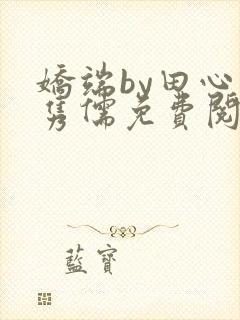 嬌端by田心
雋儒免費閱
藍寶